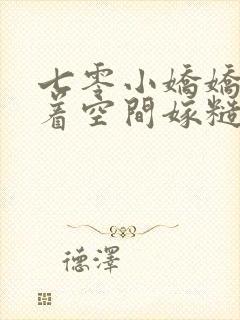 七零小嬌嬌
着空間嫁糙
德澤